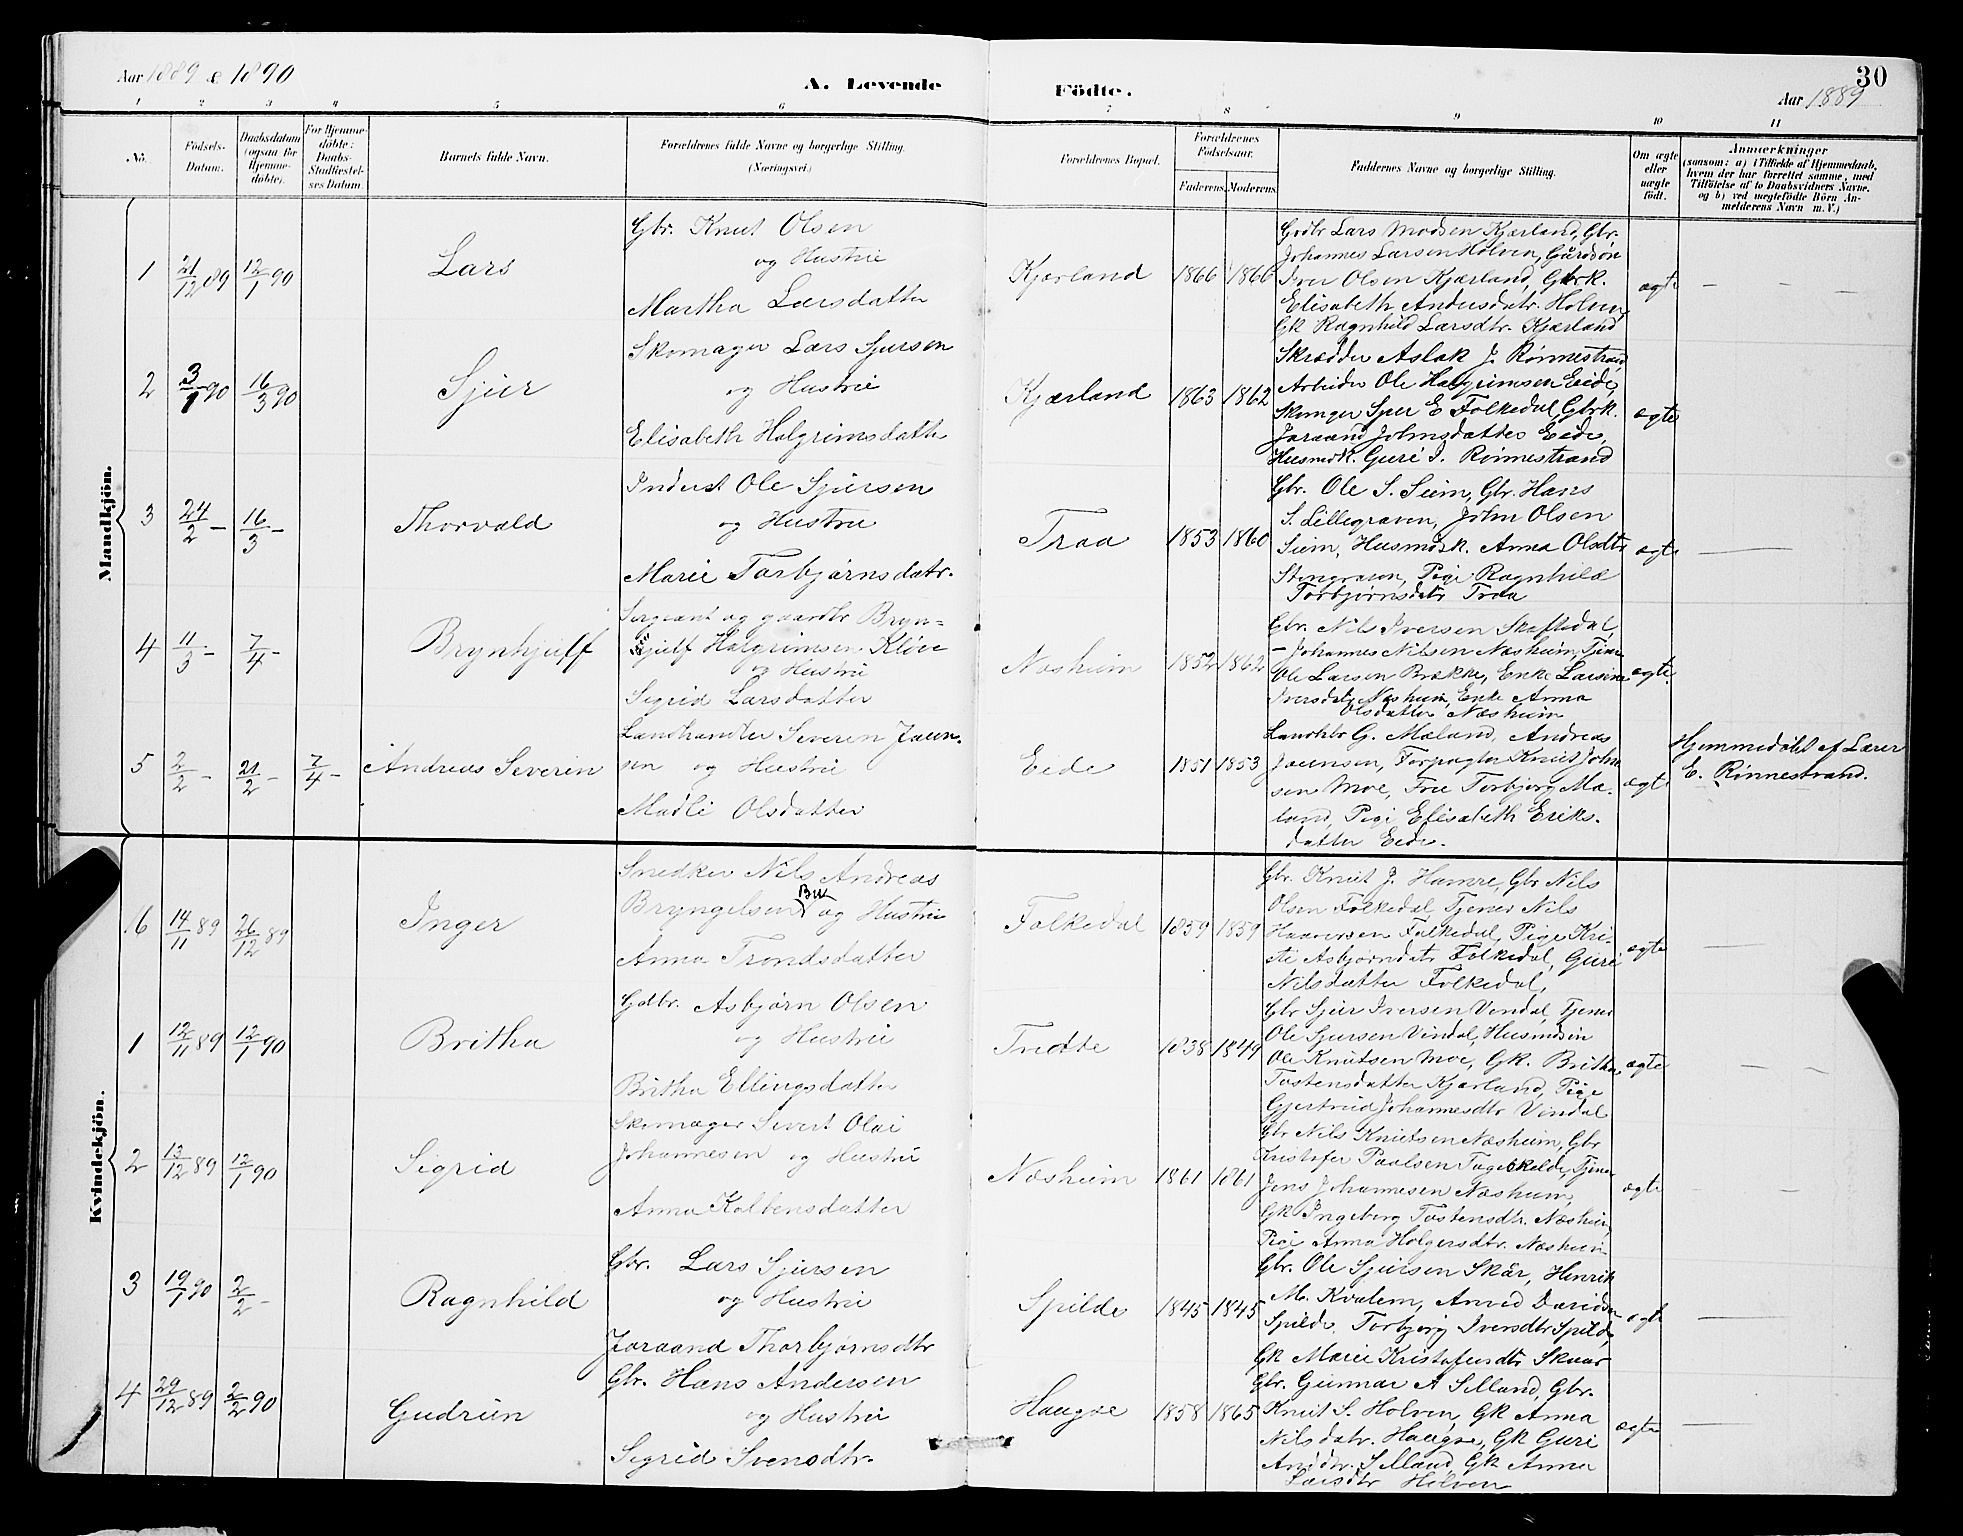 Aar 1889 & 1890
A. Levende
Födte.
30
Aar 1889
1 2 3 4 5 6 7 8 9 10 11
No.
Födsels-
Datum.
Daabsdatum
(ogsaa for
Hjemme-
döbte).
For Hjemme-
döbte:
Daabs-
Stadfæstel-
ses Datum.
Barnets fulde Navn.
Forældrenes fulde Navne og borgerlige Stilling.
(Næringsvei.)
Forældrenes Bopæl.
Forældrenes
Födselsaar.
Faderens. Moderens.
Faddernes Navne og borgerlige Stilling.
Om ægte
eller
uægte
födt.
Anmærkninger
(saasom: a) (Tilfælde af Hjemmedaab,
hvem der har forrettet samme, med
Tilföielse af to Daabsvidners Navne,
og b) ved uægtefödte Börn An-
melderens Navn m. V.)
Mandkjön.
1 21/12 89 12/1 90
Lars
Gbr. Knut Olsen
og Hustru
Martha Larsdatter
Kjærland 1866 1866
Grdbr Lars Madsen Kjærland, Gbr.
Johannes Larsen Holven, Gårdsøn
Iver Olsen Kjærland, Gbrk.
Elisabeth Andersdatr. Holven,
Gk Ragnhild Larsdtr. Kjærland
ægte
2 3/1 90 16/3 90
Sjur
Skomager Lars Sjursen
og Hustru
Elisabeth Halgrimsdatter
Kjærland 1863 1862
Skrædder Aslak J. Rønnestrand,
Arbeider Ole Halgrimsen Eide,
Skomger Sjur E Folkedal, Gbrk.
Joraand Johnsdatter Eide,
Husmdk. Guri I. Rønnestrand
ægte
3 24/2 – 16/3 –
Thorvald
Inderst Ole Sjursen
og Hustru
Marie Torbjørnsdatr.
Traa 1853 1860
Gbr. Ole S. Seim, Gbr. Hans
S. Lillegraven, John Olsen
Seim, Husmdsk. Anna Olsdtr
Pige Ragnhild
Torbjørnsdatr Traa
ægte
4 11/3 – 7/4 –
Brynhjulf
Sergeant og gaardbr Bryn-
hjulf Halgrimsen Kløve
og Hustru
Sigrid Larsdatter
Næsheim 1852 1862
Gbr. Nils Iversen Skaftedal,
Johannes Nilsen Næsheim, Tjener
Ole Larsen Brække, Enke Larsine
Iversdatr Næsheim, Enke Anna
Olsdatter Næsheim
ægte
5 2/2 – 21/2 – 7/4 –
Andreas Severin
Landhandler Severin Jaen-
sen og Hustru
Madli Olsdatter
Eide 1851 1853
Landhbr G. Mæland, Andreas
Jaensen, Forpagter Knut John-
sen Moe, Frue Torbjørg Mæ-
land, Pige Elisabeth Eriks-
datter Eide.
ægte
Hjemmedøbt af Lærer
E. Rønnestrand.
16 14/11 89 26/12 89
Inger
Snedker Nils Andreas
Bryngelsen Bu og Hustru
Anna Trondsdatter
Folkedal 1859 1859
Gbr. Knut J. Hamre, Gbr Nils
Olsen Folkedal, Tjener Nils
Haaversen Folkedal, Pige Kri-
sti Asbjørndatr Folkedal, Guri
Nilsdatter Folkedal,
ægte
Kvindekjön.
1 12/11 89 12/1 90
Britha
Gdbr. Asbjørn Olsen
og Hustru
Britha Ellingsdatter
Tvedte 1838 1849
Gbr Sjur Iversen Vindal, Tjener
Ole Sjursen Vindal, Husmdsøn
Ole Knutsen Moe, Gk. Britha
Tostensdatter Kjærland, Pige
Gjertrud Johannesdtr Vindal
ægte
2 13/12 89 12/1 90
Sigrid
Skomager Sivert Olai
Johannesen og Hustru
Anna Kolbensdatter
Næsheim 1861 1861
Gbr Nils Knutsen Næsheim, Gbr
Kristofer Paalsen Tagekelde, Tjener
Jens Johannesen Næsheim,
Gk Ingeborg Tostensdtr. Næsheim,
Pige Anna Holgersdtr. Næsheim
ægte
3 19/1 90 2/2 –
Ragnhild
Gbr. Lars Sjursen
og Hustru
Joraand Thorbjørnsdtr
Spilde 1845 1845
Gbr. Ole Sjursen Skår, Henrik
M. Kvalem, Amund Davidsen
Spilde, Torbjørg Iversdtr Spilde,
Gk Marie Kristofersdtr Skaar
ægte
4 29/12 89 2/2 90
Gudrun
Gbr. Hans Andersen
og Hustru
Sigrid Svensdtr.
Haugse 1858 1865
Gbr. Gunnar A Selland, Gbr.
Knut S. Holven, Gk Anna
Nilsdatr. Haugse, Gk Guri
Andrdtr. Selland, Gk Anna
Larsdtr Holven
ægte